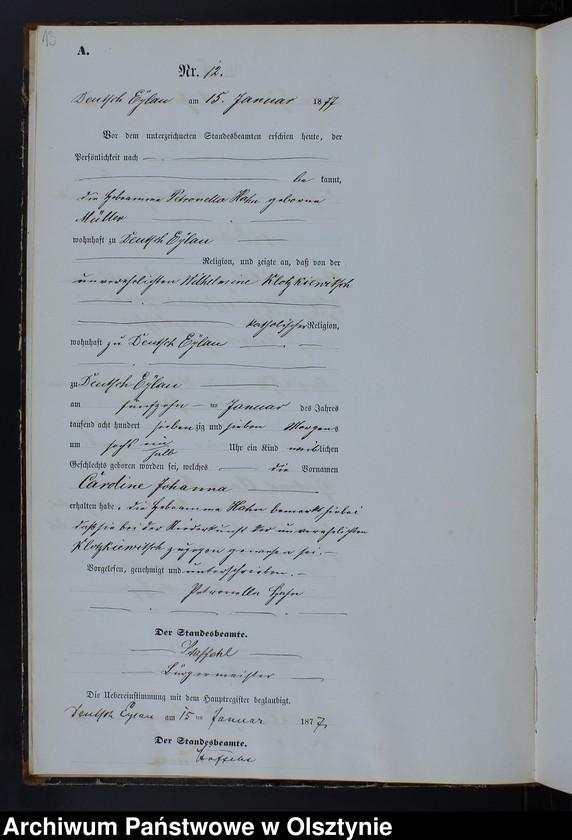 13
A.
Nr. 12.
Deutsch Eylau am 15. Januar 1877
Vor dem unterzeichneten Standesbeamten erschien heute, der
Persönlichkeit nach
be kannt,
die Hebeamme Petronella Hahn geborne
Müller
wohnhaft zu Deutsch Eylau
Religion, und zeigte an, daß von der
unverehelichten Wilhelmine Klotzkiewitsch
katholischer Religion,
wohnhaft zu Deutsch Eylau
zu Deutsch Eylau
am fünfzehn ten Januar des Jahres
tausend acht hundert sieben zig und sieben Morgens
um sechs ein halb Uhr ein Kind weiblichen
Geschlechts geboren worden sei, welches die Vornamen
Caroline Johanna
erhalten habe, die Hebeamme Hahn bemerkt hiebei
daß sie bei der Niederkunft der unverehelichten
Klotzkiewitsch zugegen gewesen sei.
Vorgelesen, genehmigt und unterschrieben.
Petronella Hahn
Der Standesbeamte.
Bürgermeister
Die Uebereinstimmung mit dem Hauptregister beglaubigt.
Deutsch Eylau am 15 ten Januar 1877.
Der Standesbeamte.
Archiwum Państwowe w Olsztynie